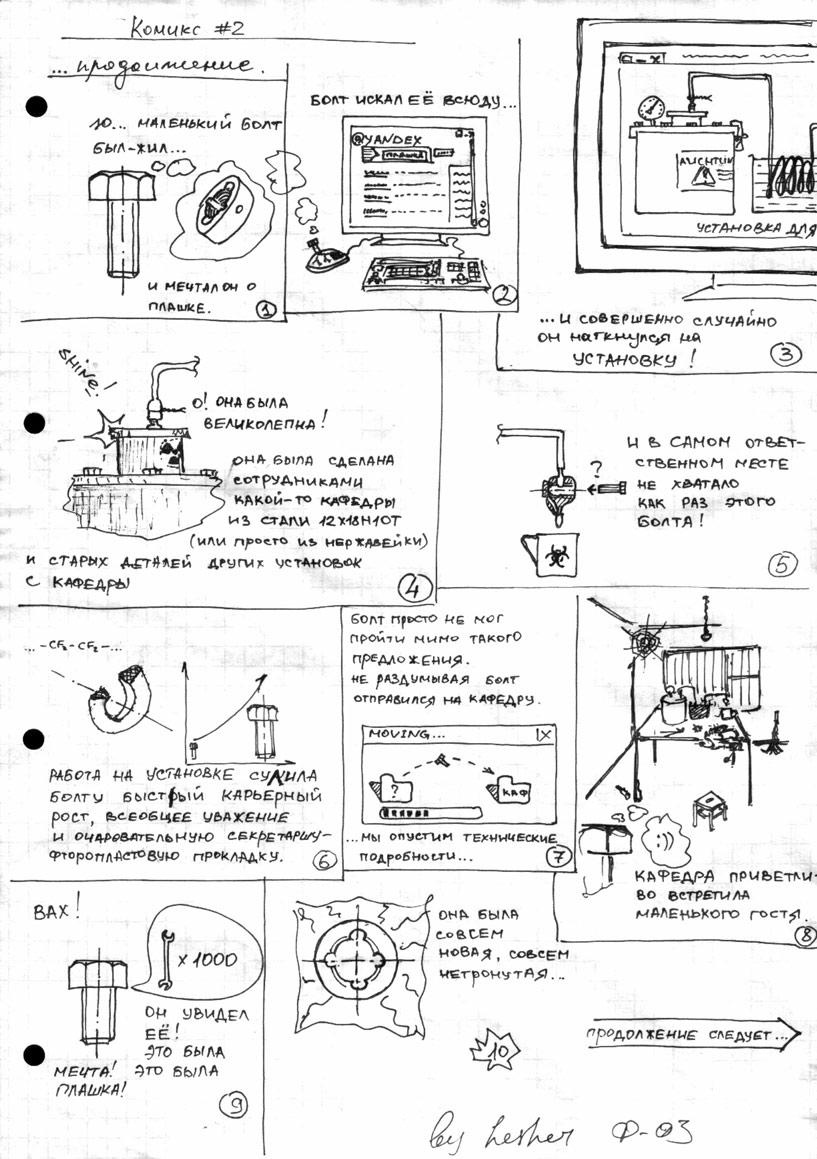 Комикс #2
... продолжение.
Ю... МАЛЕНЬКИЙ БОЛТ
БЫЛ-ЖИЛ...
И МЕЧТАЛ ОН О
ПЛАШКЕ.
1
БОЛТ ИСКАЛ ЕЁ ВСЮДУ...
YANDEX
ПЛАШКА
2
УСТАНОВКА ДЛЯ
...И СОВЕРШЕННО СЛУЧАЙНО
ОН НАТКНУЛСЯ НА
УСТАНОВКУ!
3
SHINE!
О! ОНА БЫЛА
ВЕЛИКОЛЕПНА!
ОНА БЫЛА СДЕЛАНА
СОТРУДНИКАМИ
КАКОЙ-ТО КАФЕДРЫ
ИЗ СТАЛИ 12Х18Н10Т
(ИЛИ ПРОСТО ИЗ НЕРЖАВЕЙКИ)
И СТАРЫХ ДЕТАЛЕЙ ДРУГИХ УСТАНОВОК
С КАФЕДРЫ
4
?
И В САМОМ ОТВЕТ-
СТВЕННОМ МЕСТЕ
НЕ ХВАТАЛО
КАК РАЗ ЭТОГО
БОЛТА!
5
... -CF₂-CF₂-...
РАБОТА НА УСТАНОВКЕ СУЛИЛА
БОЛТУ БЫСТРЫЙ КАРЬЕРНЫЙ
РОСТ, ВСЕОБЩЕЕ УВАЖЕНИЕ
И ОЧАРОВАТЕЛЬНУЮ СЕКРЕТАРШУ-
ФТОРОПЛАСТОВУЮ ПРОКЛАДКУ.
6
БОЛТ ПРОСТО НЕ МОГ
ПРОЙТИ МИМО ТАКОГО
ПРЕДЛОЖЕНИЯ.
НЕ РАЗДУМЫВАЯ БОЛТ
ОТПРАВИЛСЯ НА КАФЕДРУ.
MOVING... X
?
КАФ
...МЫ ОПУСТИМ ТЕХНИЧЕСКИЕ
ПОДРОБНОСТИ...
7
:)
КАФЕДРА ПРИВЕТЛИ-
ВО ВСТРЕТИЛА
МАЛЕНЬКОГО ГОСТЯ.
8
ВАХ!
x 1000
ОН УВИДЕЛ
ЕЁ!
ЭТО БЫЛА
МЕЧТА! ЭТО БЫЛА
ПЛАШКА!
9
ОНА БЫЛА
СОВСЕМ
НОВАЯ, СОВСЕМ
НЕТРОНУТАЯ...
10
ПРОДОЛЖЕНИЕ СЛЕДУЕТ...
by Lesher Ф-03